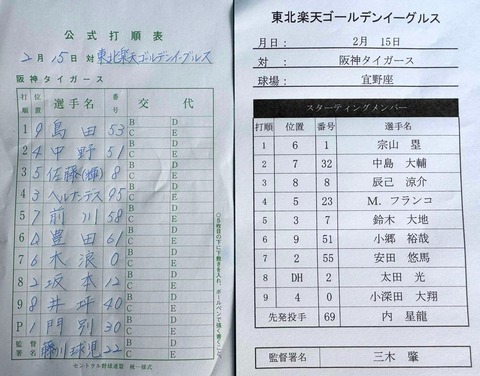 公式打順表
2月15日 対 東北楽天ゴールデンイーグルス
阪神タイガース
打順 位置 選手名 番号 交代
1 9 島田 53 B C D E
2 4 中野 51 B C D E
3 5 佐藤(輝) 8 B C D E
4 3 ヘルナンデス 95 B C D E
5 7 前川 58 B C D E
6 D 豊田 61 B C D E
7 6 木浪 0 B C D E
8 2 坂本 12 B C D E
9 8 井坪 40 B C D E
P 1 門別 30 B C D E
監督署名 藤川球児 22 B C D E
セントラル野球連盟 統一様式
○5枚目の下に下敷きを入れ、ボールペンで強く書くこと。
東北楽天ゴールデンイーグルス
月日: 2月 15日
対: 阪神タイガース
球場: 宜野座
スターティングメンバー
打順 位置 番号 選手名
1 6 1 宗山 塁
2 7 32 中島 大輔
3 8 8 辰己 涼介
4 5 23 M. フランコ
5 3 7 鈴木 大地
6 9 51 小郷 裕哉
7 2 55 安田 悠馬
8 DH 2 太田 光
9 4 0 小深田 大翔
先発投手 69 内 星龍
監督署名 三木 肇